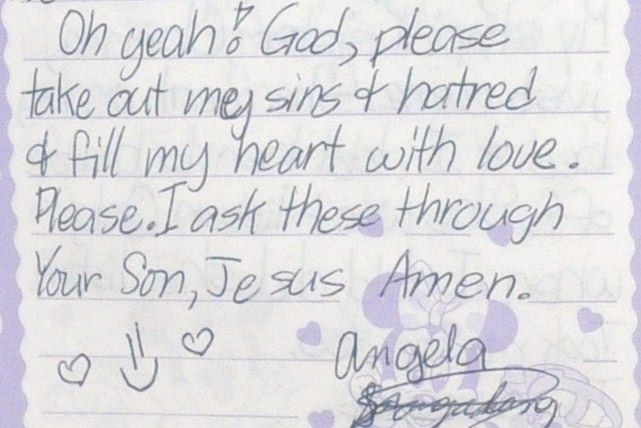 Oh yeah! God, please
take out mey sins & hatred
& fill my heart with love.
Please. I ask these through
Your Son, Jesus Amen.
angela